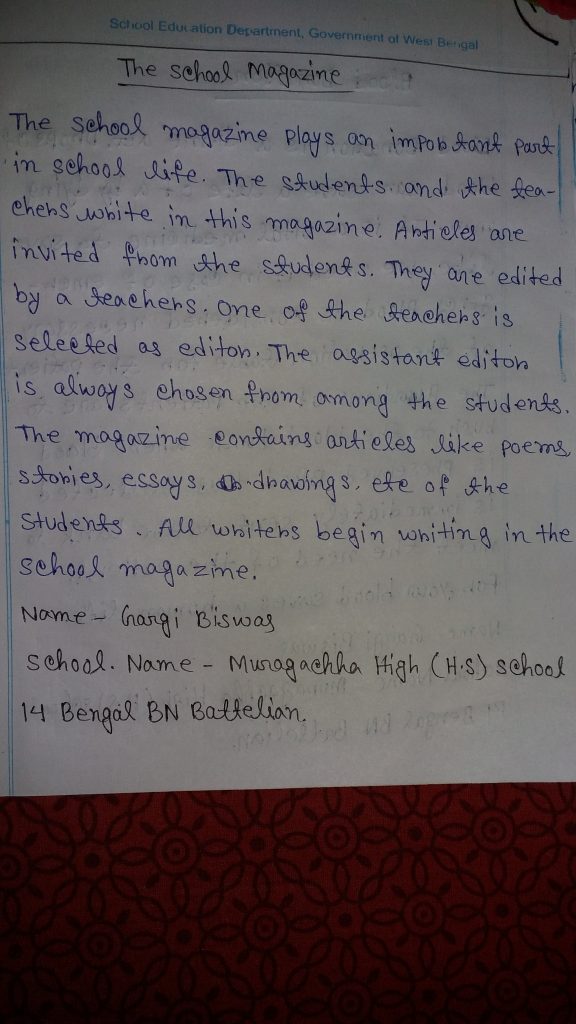 School Education Department, Government of West Bengal
The school Magazine
The school magazine plays an important part
in school life. The students and the tea-
chers write in this magazine. Articles are
invited from the students. They are edited
by a teachers. One of the teachers is
selected as editor. The assistant editor
is always chosen from among the students.
The magazine contains articles like poems,
stories, essays, drawings, etc of the
students. All writers begin writing in the
school magazine.
Name - Gargi Biswas
School. Name - Muragachha High (H.S) school
14 Bengal BN Battelian.